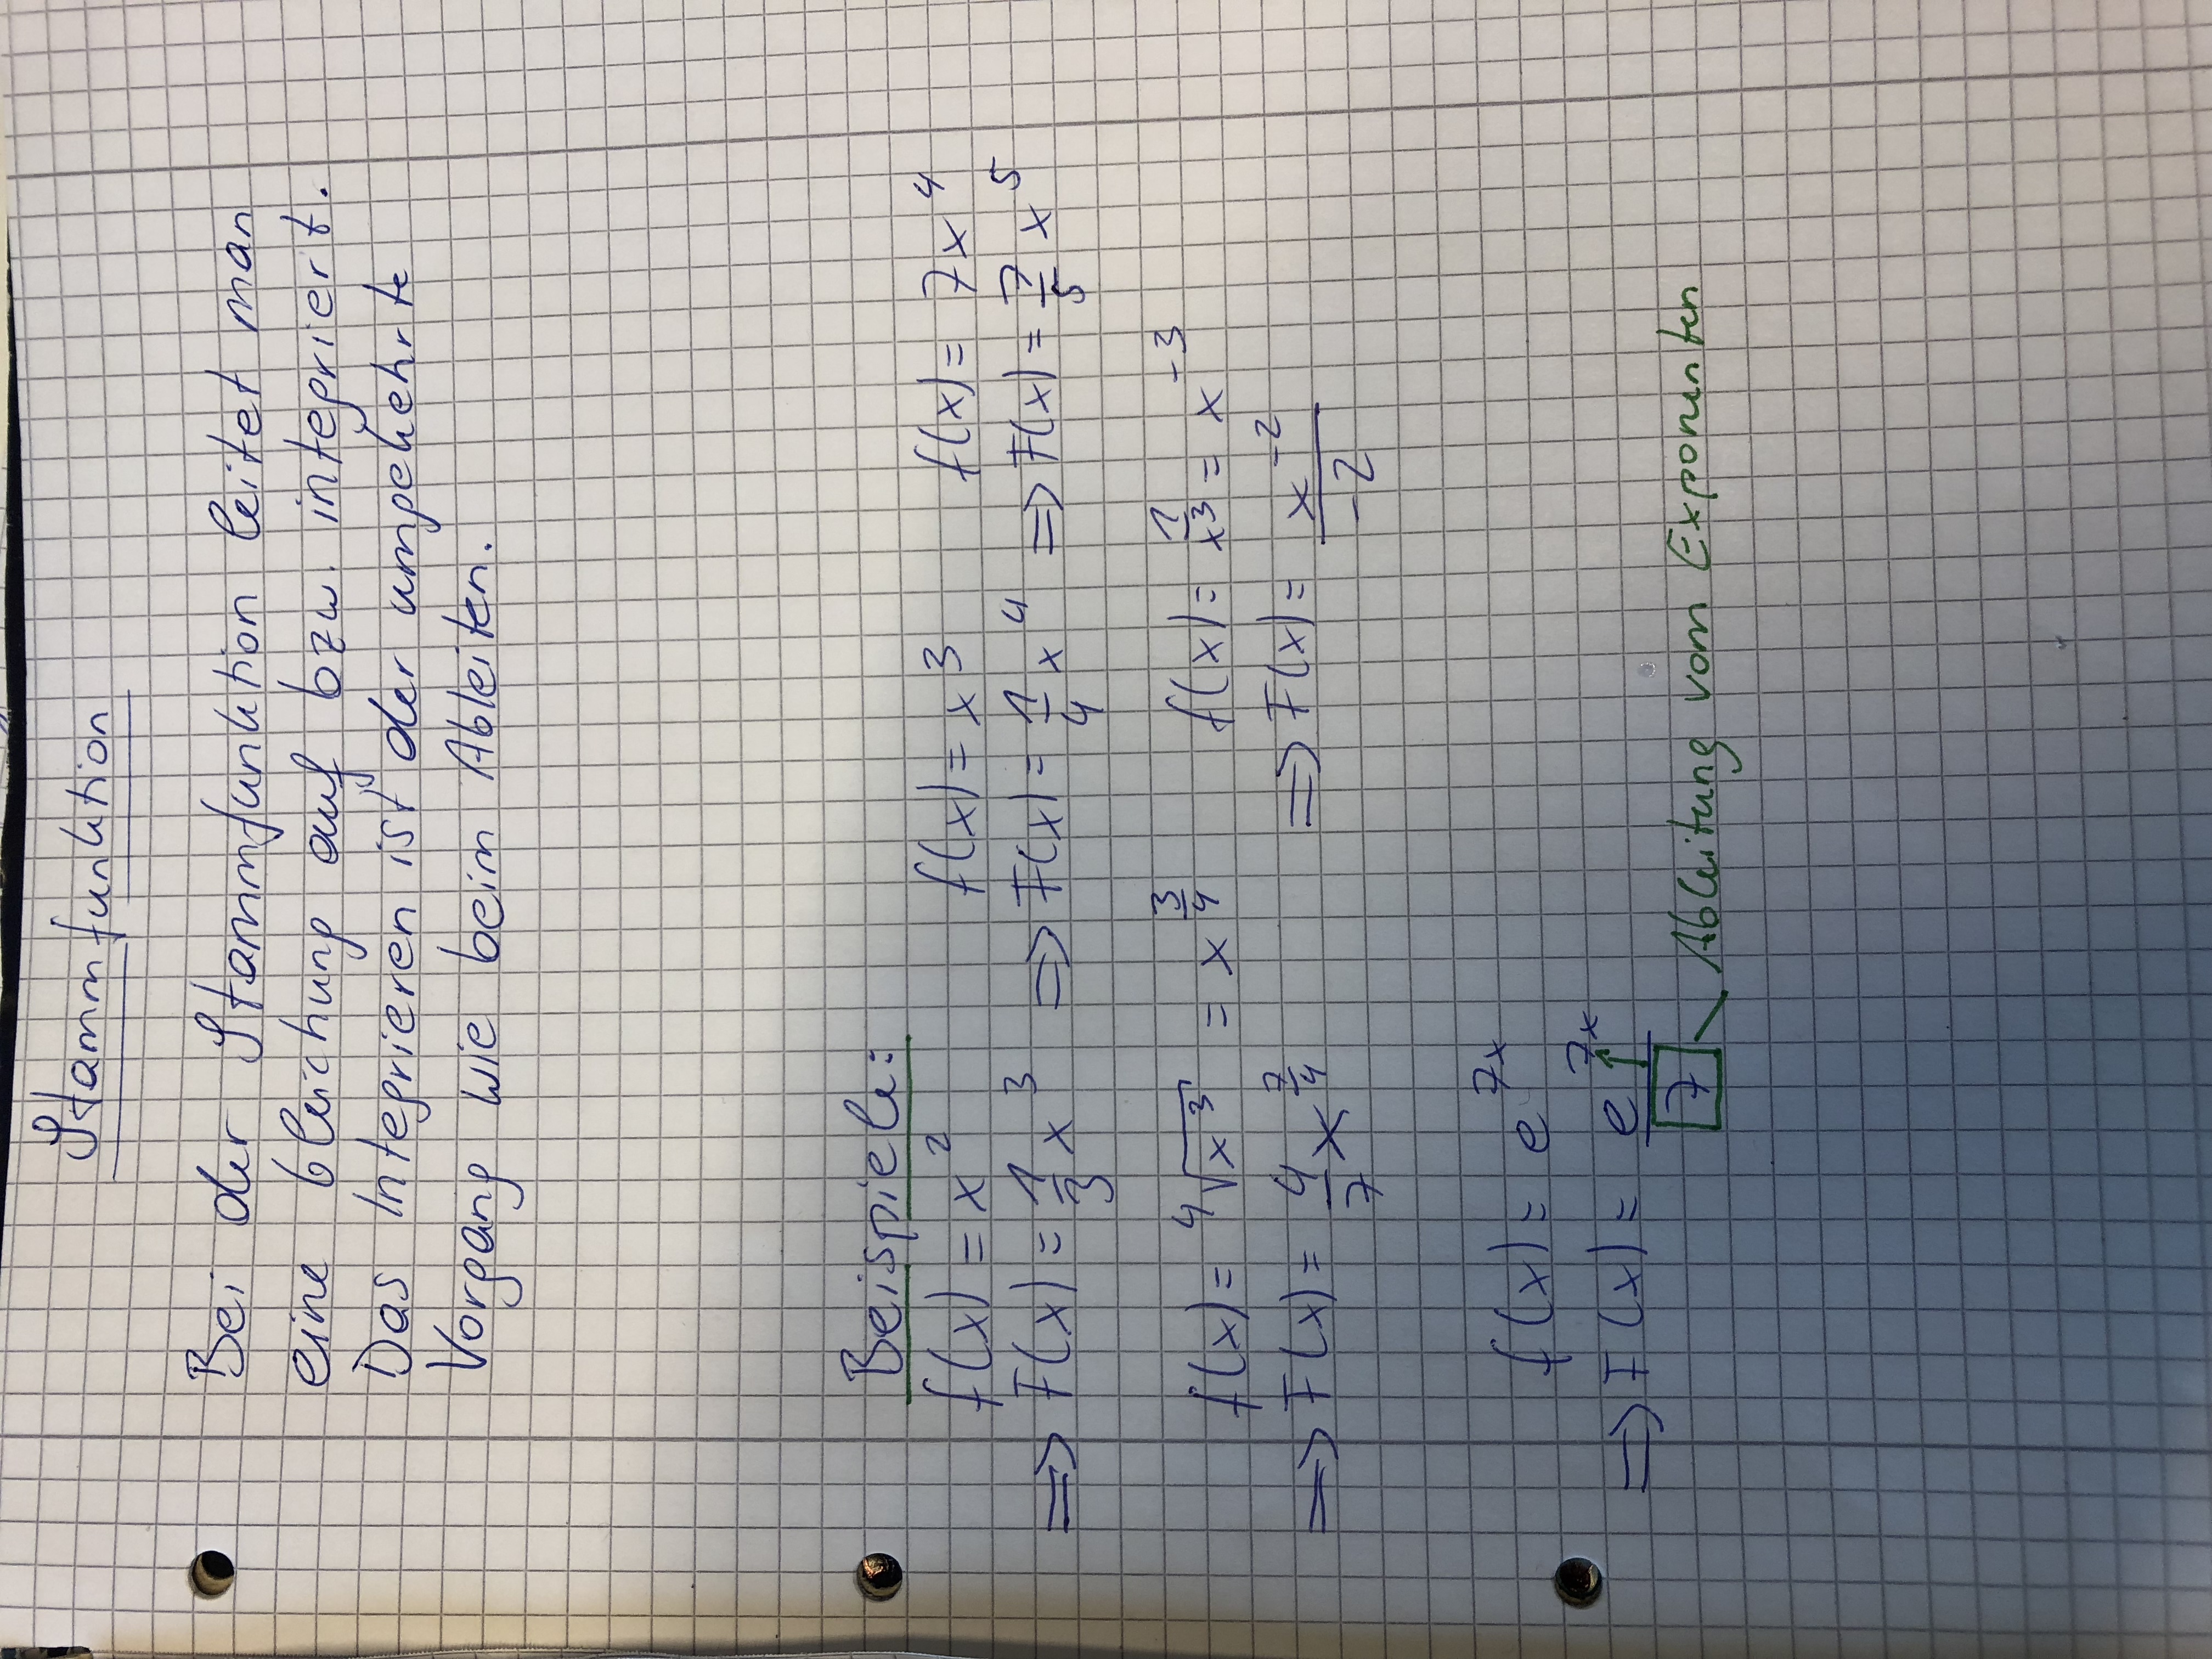 Stammfunktion
Bei der Stammfunktion leitet man
eine Gleichung auf bzw. integriert.
Das Integrieren ist der umgekehrte
Vorgang wie beim Ableiten.
Beispiele:
f(x) = x² f(x) = x³ f(x) = 7x⁴
=> F(x) = 1/3 x³ => F(x) = 1/4 x⁴ => F(x) = 7/5 x⁵
f(x) = ⁴√x³ = x^(3/4) f(x) = 1/x³ = x⁻³
=> F(x) = 4/7 x^(7/4) => F(x) = x⁻²/-2
f(x) = e^(7x)
=> F(x) = e^(7x)/7
Ableitung vom Exponenten